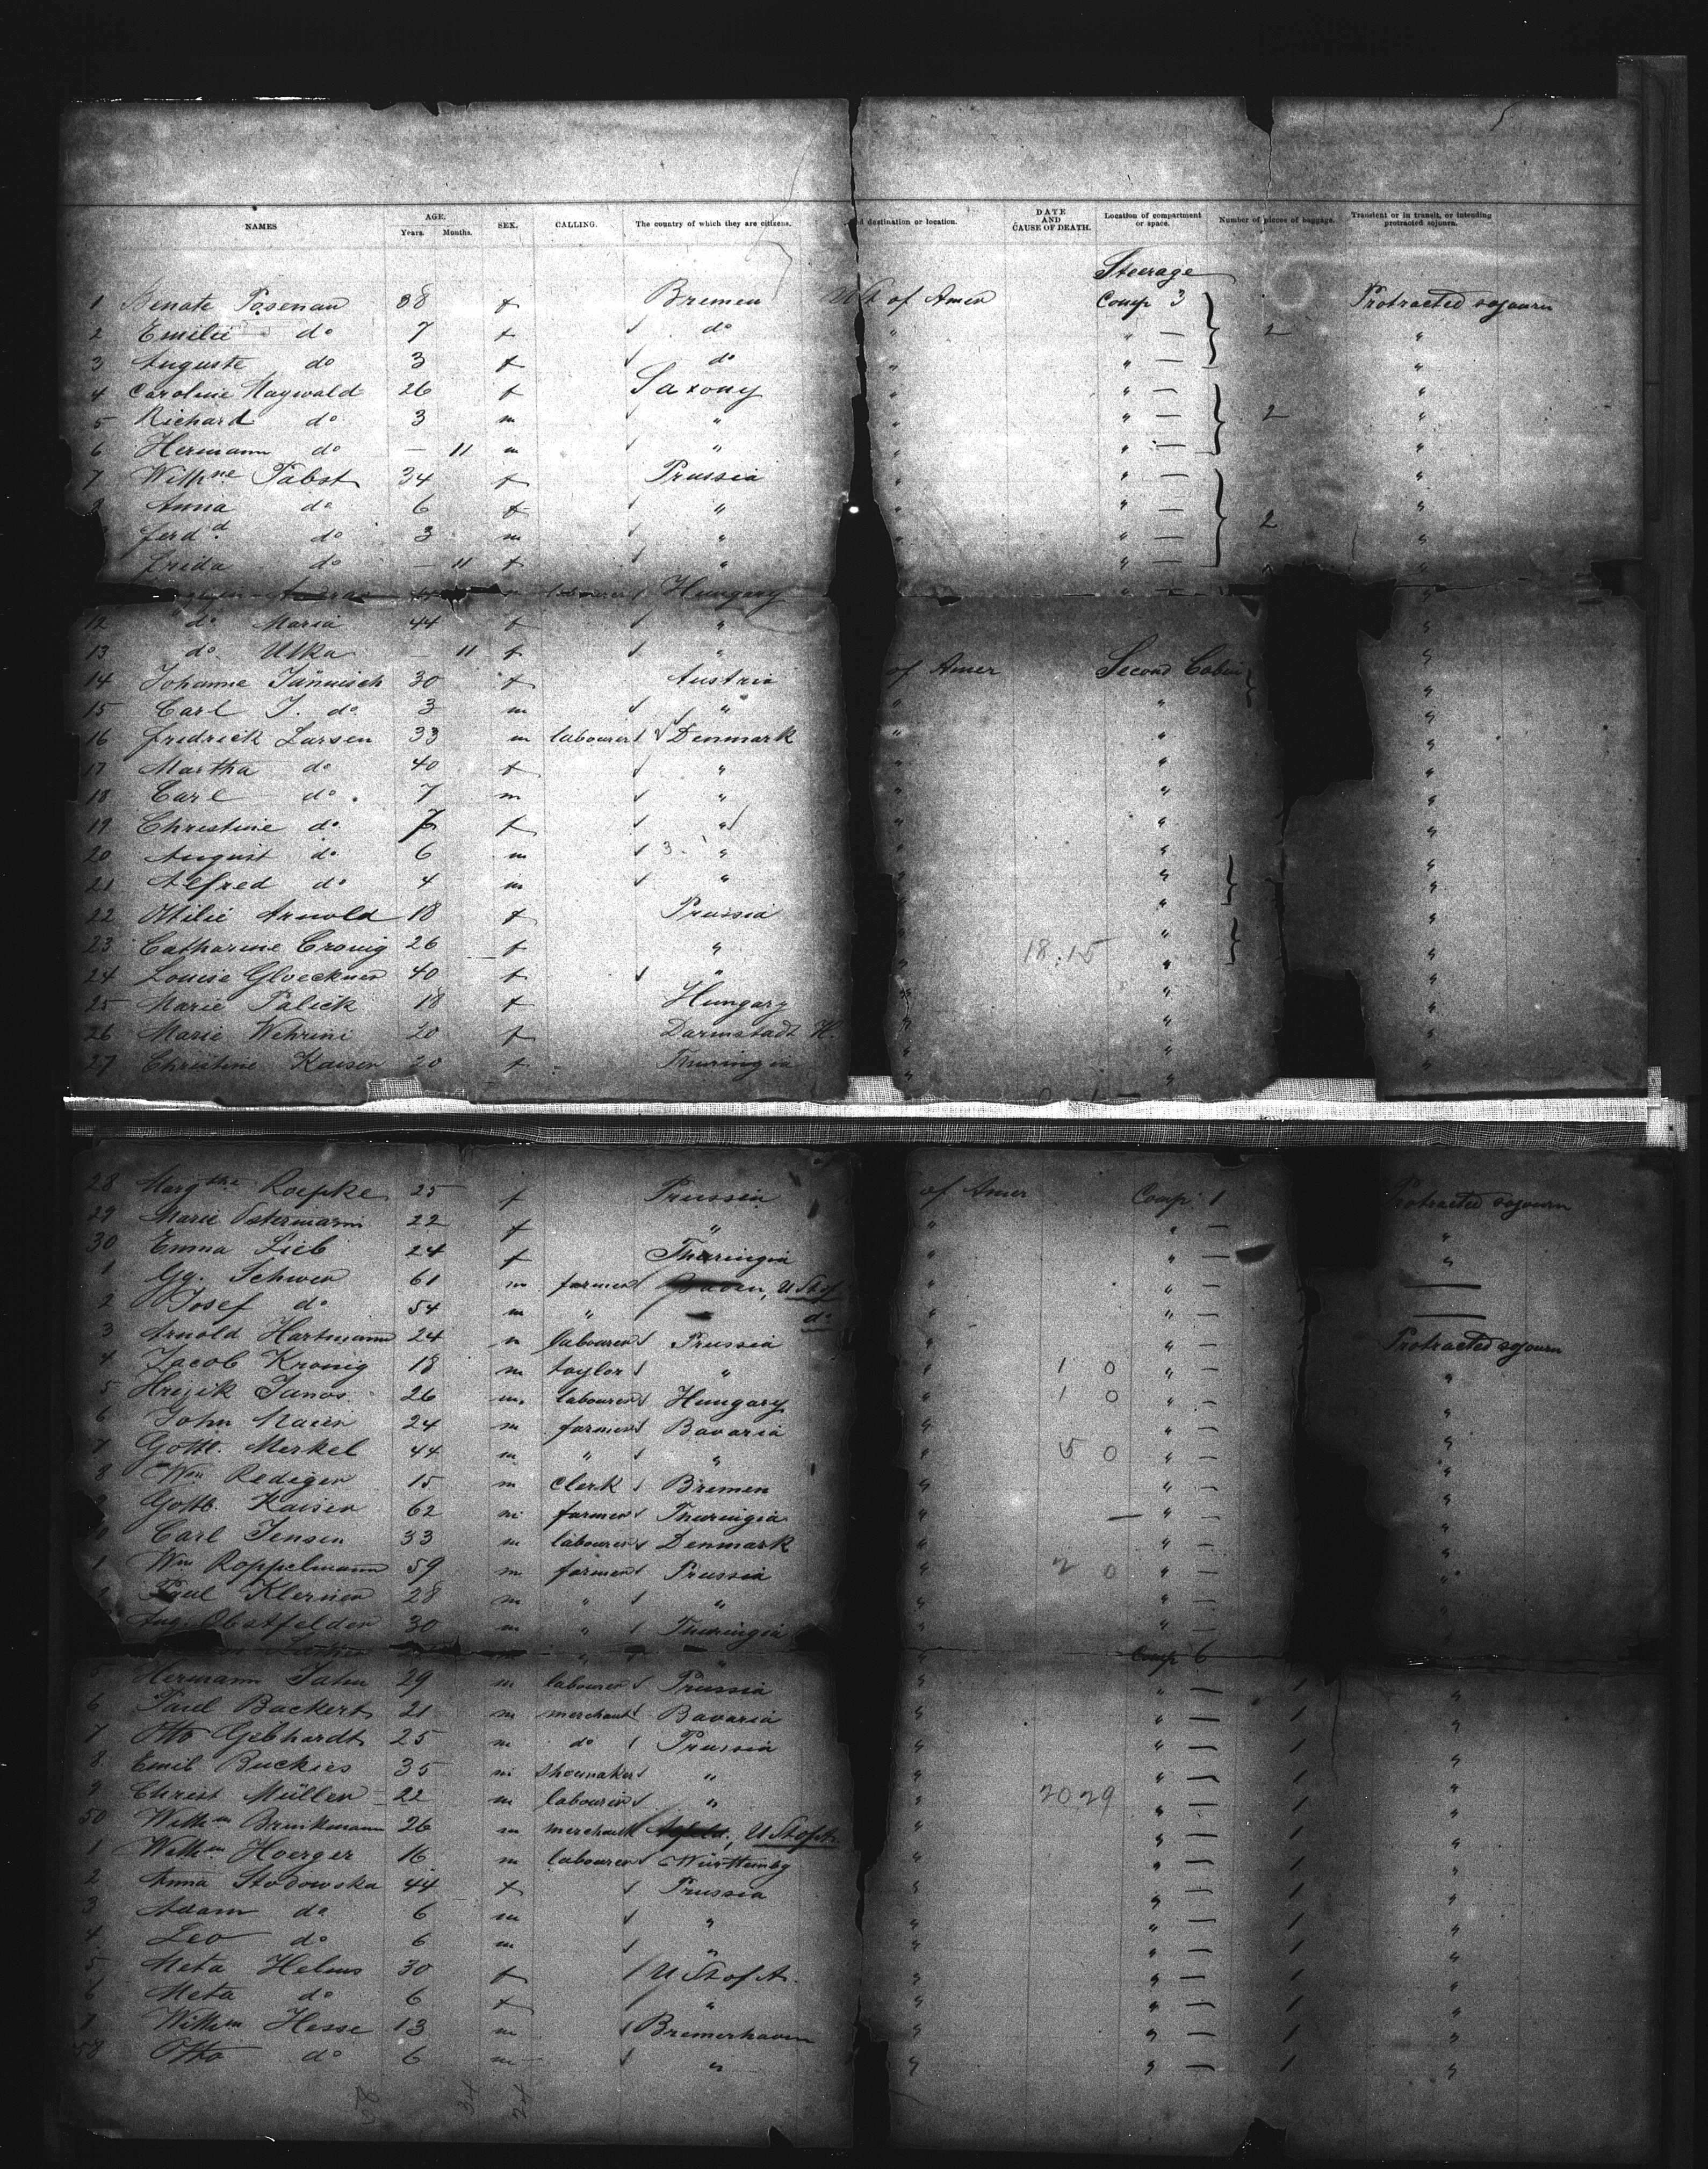 NAMES AGE. Years. Months. SEX. CALLING. The country of which they are citizens. d destination or location. DATE AND CAUSE OF DEATH. Location of compartment or space. Number of pieces of baggage. Transient or in transit, or intending protracted sojourn.
Steerage
1 Renate Posenau 38 f Bremen USt of Amer Comp 3 Protracted sojourn
2 Emilie do 7 f do " " — 2 "
3 Auguste do 3 f do " " — "
4 Caroline Haywald 26 f Saxony " " — "
5 Richard do 3 m " " " — 2 "
6 Hermann do — 11 m " " " — "
7 Wilhne Pabst 34 f Prussia " " — "
Anna do 6 f " " " — "
Ferdd. do 3 m " " " — 2 "
Frida do — 11 f " " " — "
labourer Hungary " "
12 do Maria 44 f " "
13 do Ulka — 11 f " "
14 Johanne Jännisch 30 f Austria of Amer Second Cabin "
15 Carl J. do 3 m " " " "
16 Fredrick Larsen 33 m labourer Denmark " " "
17 Martha do 40 f " " " "
18 Carl do 7 m " " " "
19 Christine do f " " " "
20 August do 6 m 3 " " " "
21 Alfred do 4 m " " " "
22 Ottilie Arnold 18 f Prussia " " "
23 Catharine Cronig 26 f " " 18.15 " "
24 Louise Gloeckner 40 f " " " "
25 Marie Palick 18 f Hungary " " "
26 Marie Wehrini 20 f Darmstadt H. " " "
27 Christine Kaiser 20 f Thuringia " " "
28 Margthe Roepke 25 f Prussia of Amer Comp. 1 Protracted sojourn
29 Marie Ostermann 22 f " " " — "
30 Emma Lieb 24 f Thuringia " " — "
1 Gg. Schwer 61 m farmer Baden, U St of " " — —
2 Josef do 54 m " do " " — —
3 Arnold Hartmann 24 m labourer Prussia " " — Protracted sojourn
4 Jacob Kronig 18 m taylor " " 1 0 " — "
5 Hrizik Janos 26 m labourer Hungary " 1 0 " — "
6 John Maier 24 m farmer Bavaria " " — "
7 Gottl. Merkel 44 m " " " 5 0 " — "
8 Wm Rediger 15 m clerk Bremen " " — "
Gottl. Kaiser 62 m farmer Thuringia " — " — "
0 Carl Jensen 33 m labourer Denmark " " — "
1 Wm Roppelmann 59 m farmer Prussia " 2 0 " — "
Paul Klerner 28 m " " " " — "
Aug. Obstfelder 30 m " Thuringia " " —
" " Comp 6
5 Hermann Jahn 29 m labourer Prussia " " — 1 "
6 Paul Backert 21 m merchant Bavaria " " — 1 "
7 Otto Gebhardt 25 m do Prussia " " — 1 "
8 Emil Buckies 35 m shoemaker " " " — 1 "
9 Christ Müller 22 m labourer " " 20,29 " — 1 "
50 Wilhm Brinkmann 26 m merchant U St of A. " " — 1 "
1 Wilhm Hoerger 16 m labourer Württembg " " — 1 "
2 Anna Stodowska 44 f Prussia " " — 1 "
3 Adam do 6 m " " " — 1 "
4 Leo do 6 m " " " — 1 "
5 Meta Helms 30 f U St of A. " " — 1 "
6 Meta do 6 f " " " — 1 "
7 Wilhm Hesse 13 m Bremerhaven " " — 1 "
58 Otto do 6 m " " " — 1 "
58 34 24